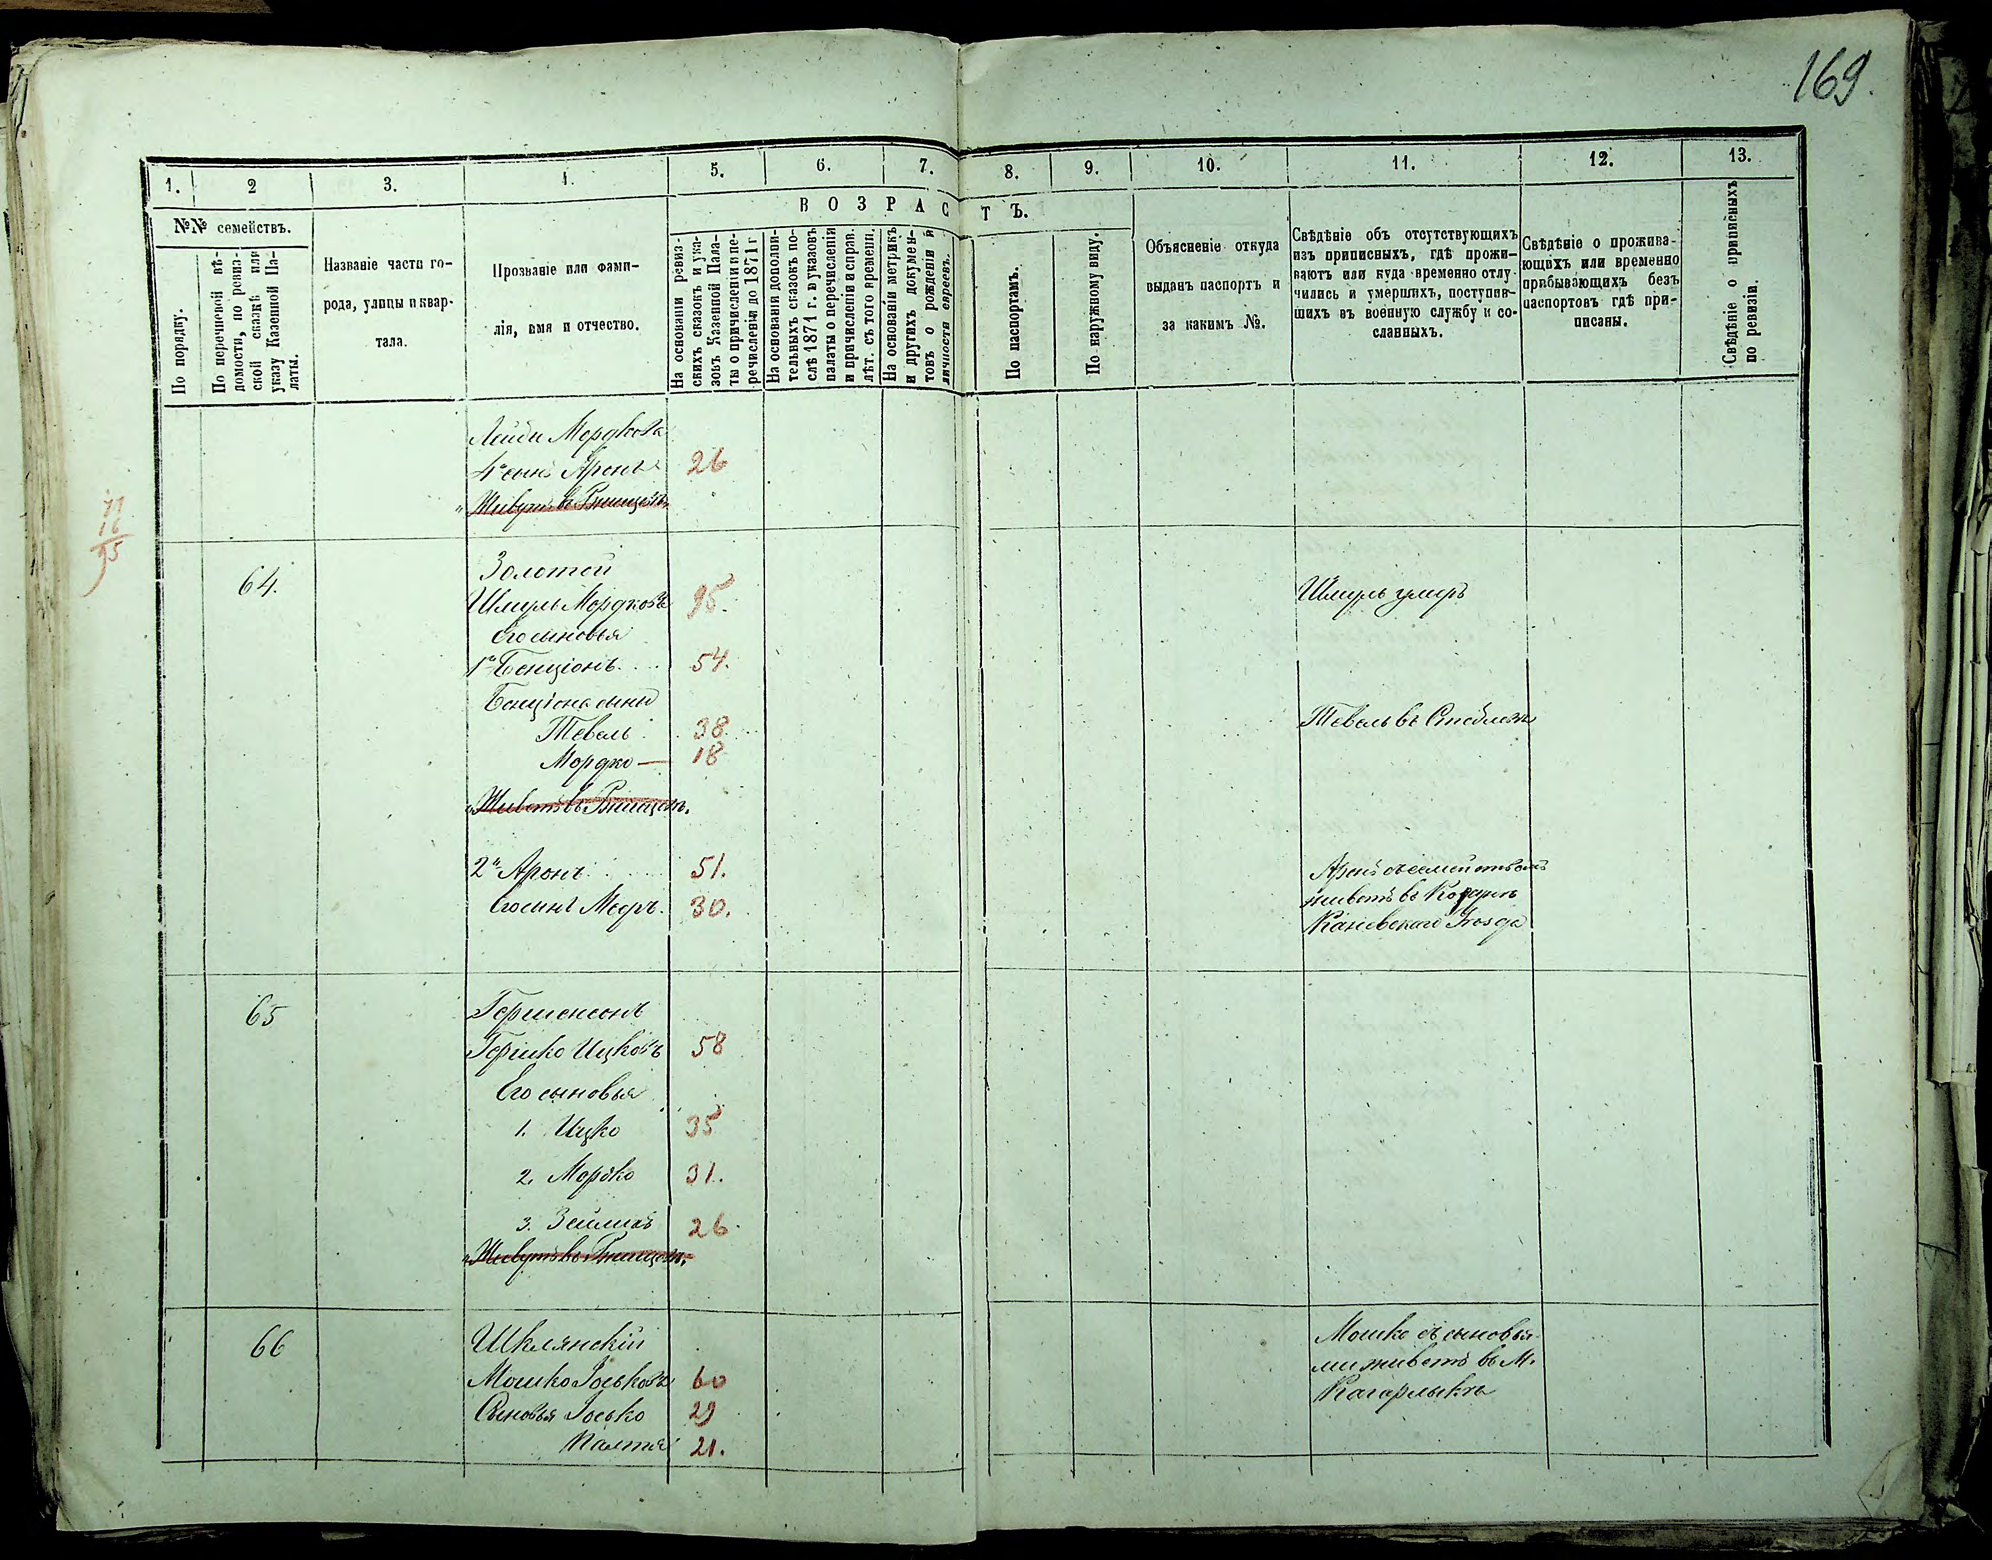 169.
1. 2 3. 4. 5. 6. 7. 8. 9. 10. 11. 12. 13.
№№ семействъ.
В О З Р А С Т Ъ.
По порядку.
По перечневой вѣ-
домости, по ревиз-
ской сказкѣ или
указу Казенной Па-
латы.
Названіе части го-
рода, улицы и квар-
тала.
Прозваніе или фами-
лія, имя и отчество.
На основаніи ревиз-
скихъ сказокъ и ука-
зовъ Казенной Пала-
ты о причисленіи и пе-
речисленіи до 1871 г
На основаніи дополни-
тельныхъ сказокъ по-
слѣ 1871 г. и указовъ
палаты о перечисленіи
и причисленіи и справ.
лѣт. съ того времени.
На основаніи метрикъ
и другихъ докумен-
товъ о рожденіи и
личности евреевъ.
По паспортамъ.
По наружному виду.
Объясненіе откуда
выданъ паспортъ и
за какимъ №.
Свѣдѣніе объ отсутствующихъ
изъ приписныхъ, гдѣ прожи-
ваютъ или куда временно отлу-
чились и умершихъ, поступив-
шихъ въ военную службу и со-
сланныхъ.
Свѣдѣніе о прожива-
ющихъ или временно
прибывающихъ безъ
паспортовъ гдѣ при-
писаны.
Свѣдѣніе о приписныхъ
по ревизіи.
Мордкова
4й сынъ Аронъ 26
Живутъ въ Ржищевѣ
16
95
64. Золотой
Шмуль Мордковъ 95. Шмуль умеръ
Его сыновья
1й Бенціонъ 54.
Бенціона сыны
Тевель 38 Тевель въ Стеблевѣ
Мордко 18
Живетъ въ Ржищевѣ.
2й Аронъ 51. Аронъ съ семействомъ
Его сынъ Мееръ. 30. живетъ въ
Каневскаго Уѣзда
65 Гершенсонъ
Гершко Ицковъ 58
Его сыновья
1. Ицко 35
2. Мордко 31.
3. Зейликъ 26.
Живутъ въ Ржищевѣ.
66 Шклянскій Мошко съ сыновья-
Мошко Іоськовъ 60 ми живетъ въ М.
Сыновья Іосько 29 Кагарлыкѣ
Палтія 21.